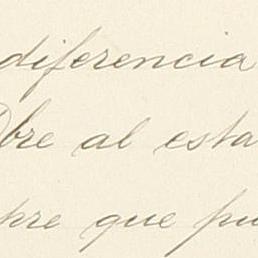 diferencia
bre al esta
pre que pu